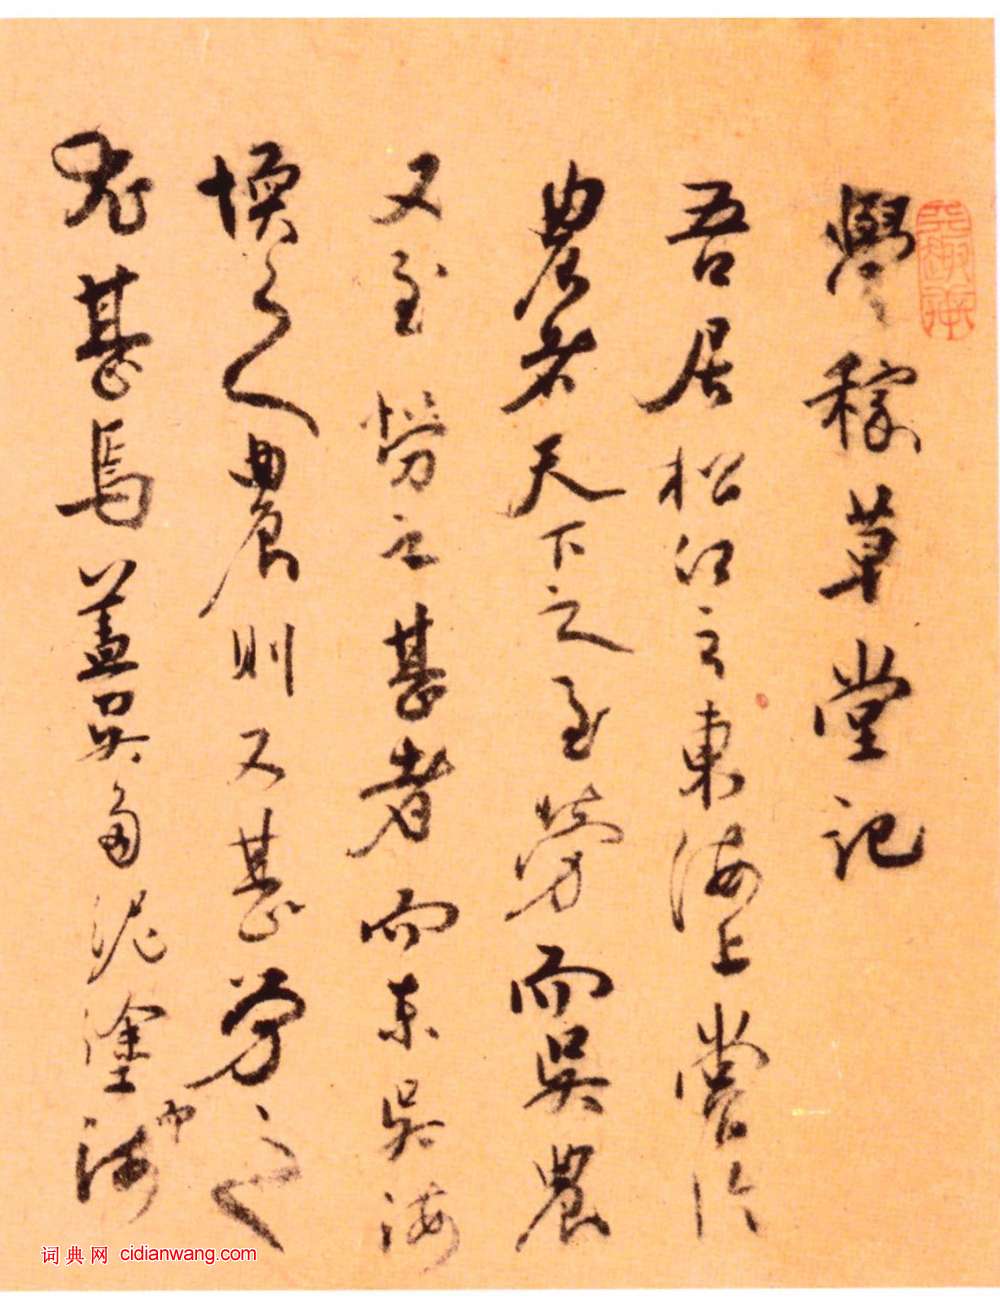 學稼草堂記
吾居松江之東海上嘗論
農者天下之至勞而吳農
又至勞之甚者而東吳海
堧之農則又甚勞之
尤甚焉蓋吳多泥塗而海
词典网 cidianwang.com